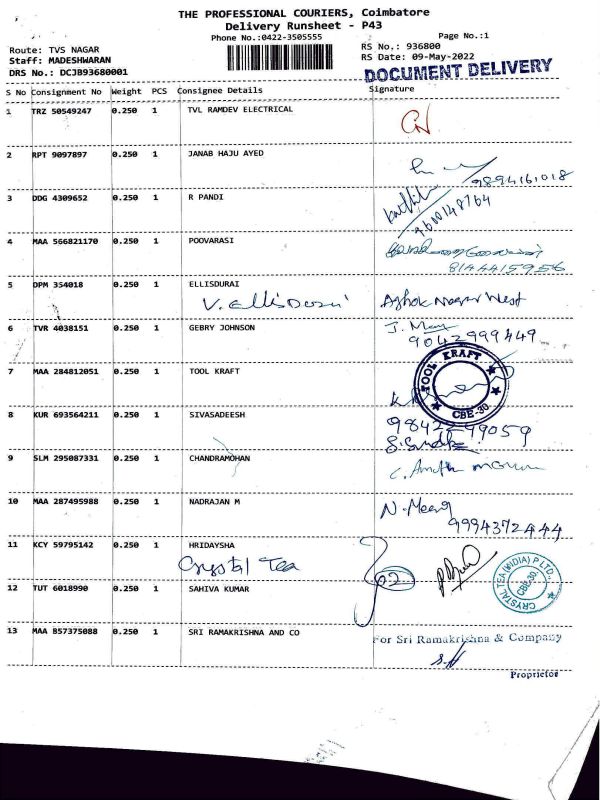 THE PROFESSIONAL COURIERS, Coimbatore
Delivery Runsheet - P43
Phone No.:0422-3505555
Page No.:1
Route: TVS NAGAR
RS No.: 936800
Staff: MADESHWARAN
RS Date: 09-May-2022
DRS No.: DCJB93680001
DOCUMENT DELIVERY
S No Consignment No Weight PCS Consignee Details Signature
1 TRZ 50549247 0.250 1 TVL RAMDEV ELECTRICAL
2 RPT 9097897 0.250 1 JANAB HAJU AYED
9894161018
3 DDG 4309652 0.250 1 R PANDI
9600148764
4 MAA 566821170 0.250 1 POOVARASI
8144415956
5 DPM 354018 0.250 1 ELLISDURAI
V. Ellisdurai Ashok Nagar West
6 TVR 4038151 0.250 1 GEBRY JOHNSON J. May
9042999449
7 MAA 284812051 0.250 1 TOOL KRAFT
TOOL KRAFT
CBE-30
8 KUR 693564211 0.250 1 SIVASADEESH
9842299059
9 SLM 295087331 0.250 1 CHANDRAMOHAN
10 MAA 287495988 0.250 1 NADRAJAN M
9994372444
11 KCY 59795142 0.250 1 HRIDAYSHA
Crystal Tea 62
CRYSTAL TEA (INDIA) P LTD.,
CBE-30.
12 TUT 6018990 0.250 1 SAHIVA KUMAR
13 MAA 857375088 0.250 1 SRI RAMAKRISHNA AND CO
For Sri Ramakrishna & Company
Proprietor